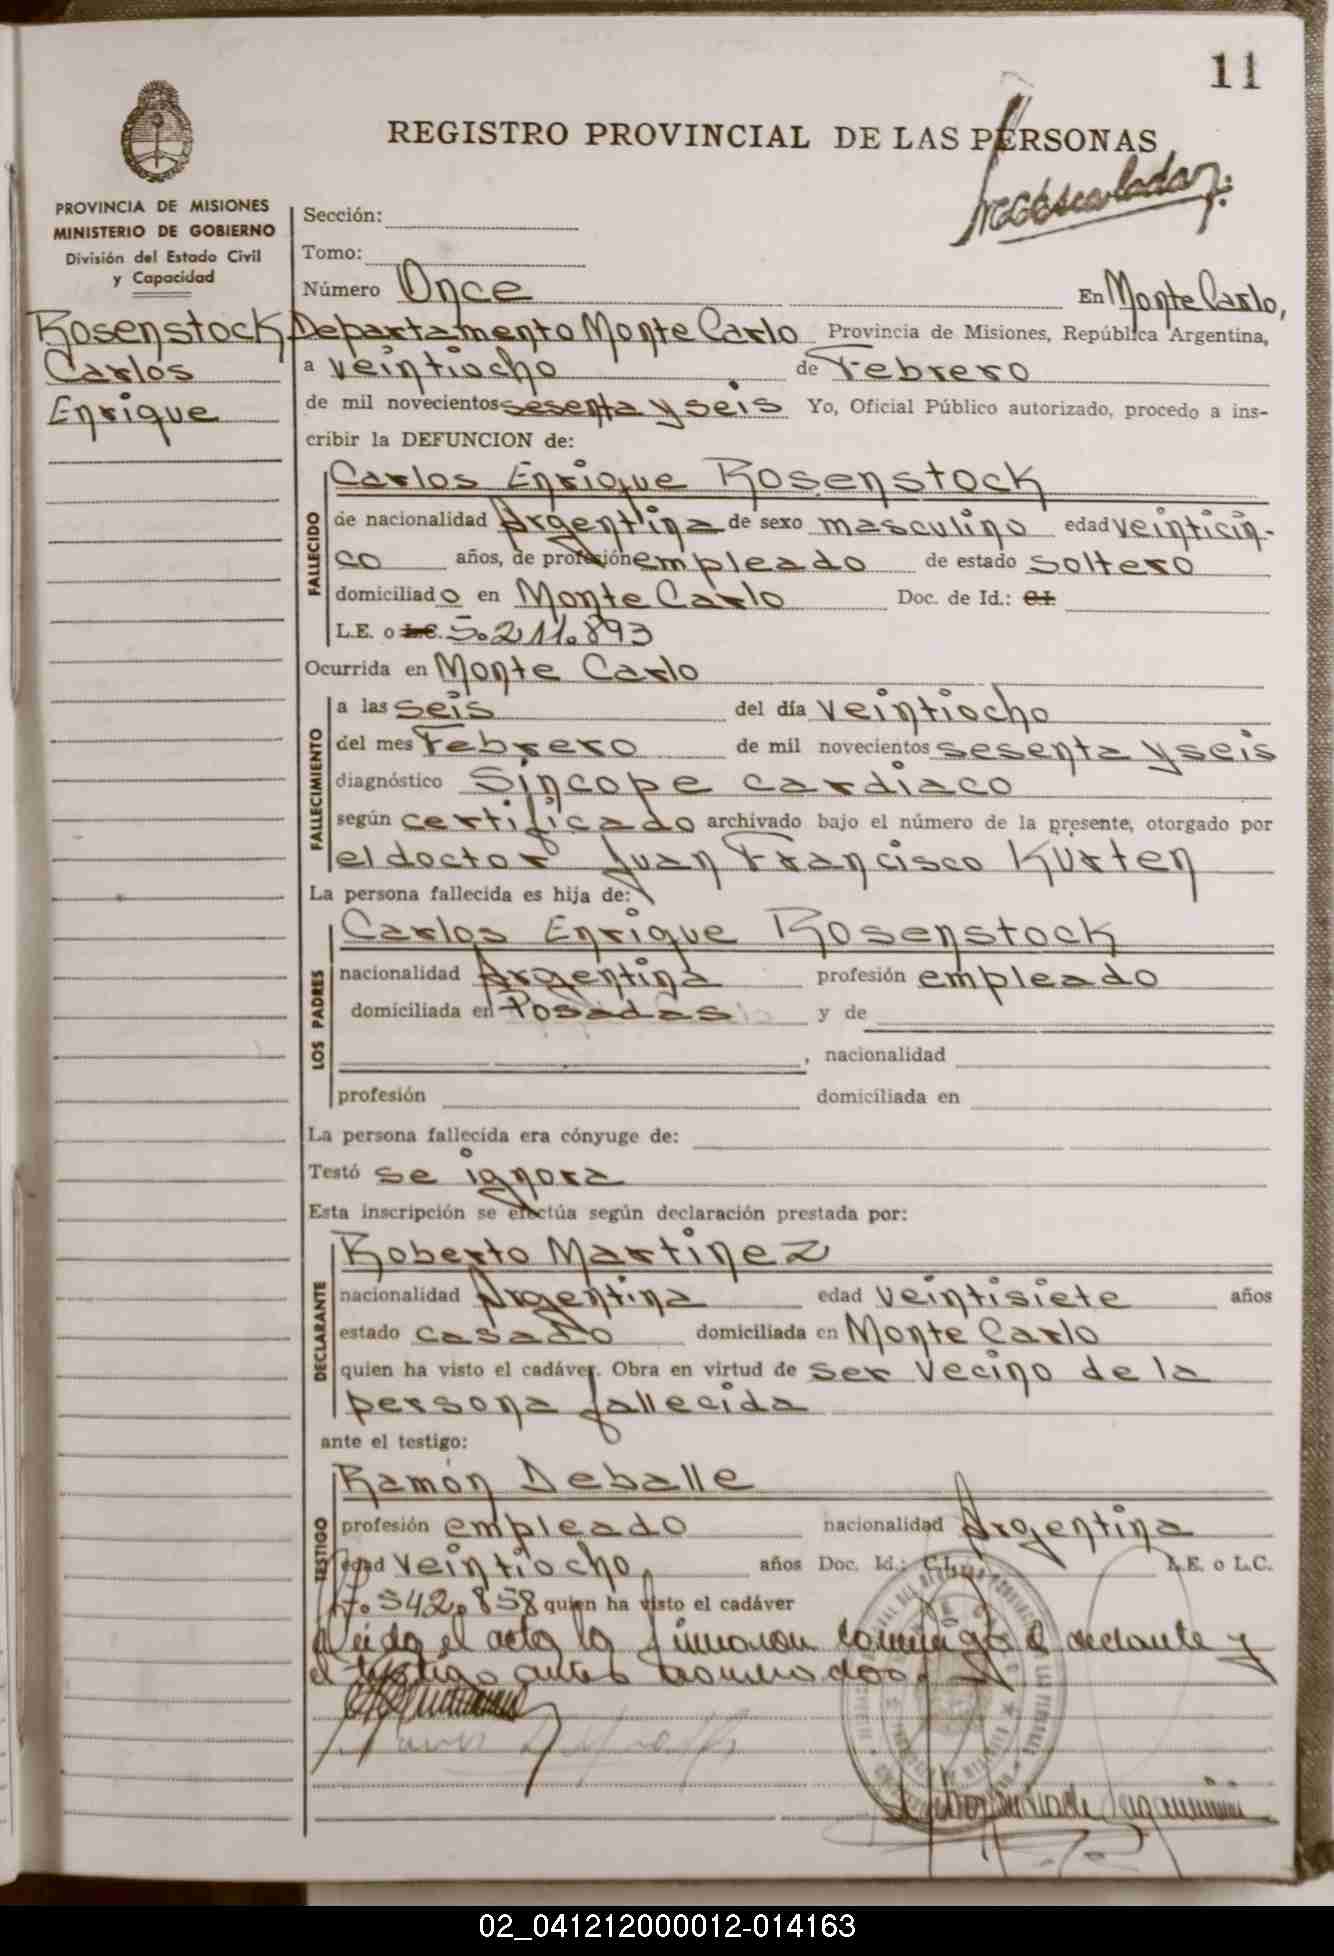 11
REGISTRO PROVINCIAL DE LAS PERSONAS
PROVINCIA DE MISIONES
MINISTERIO DE GOBIERNO
División del Estado Civil
y Capacidad
Rosenstock
Carlos
Enrique
Sección:
Tomo:
Número Once En Monte Carlo,
Departamento Monte Carlo Provincia de Misiones, República Argentina,
a veintiocho de Febrero
de mil novecientos sesenta y seis Yo, Oficial Público autorizado, procedo a ins-
cribir la DEFUNCION de:
FALLECIDO
Carlos Enrique Rosenstock
de nacionalidad Argentina de sexo masculino edad veinticin-
co años, de profesión empleado de estado soltero
domiciliado en Monte Carlo Doc. de Id.: C.I.
L.E. o L.C. 5.211.893
Ocurrida en Monte Carlo
FALLECIMIENTO
a las seis del día veintiocho
del mes Febrero de mil novecientos sesenta y seis
diagnóstico Síncope cardiaco
según certificado archivado bajo el número de la presente, otorgado por
el doctor Juan Francisco Kürten
La persona fallecida es hija de:
LOS PADRES
Carlos Enrique Rosenstock
nacionalidad Argentina profesión empleado
domiciliada en Posadas y de
, nacionalidad
profesión domiciliada en
La persona fallecida era cónyuge de:
Testó se ignora
Esta inscripción se efectúa según declaración prestada por:
DECLARANTE
Roberto Martinez
nacionalidad Argentina edad veintisiete años
estado casado domiciliada en Monte Carlo
quien ha visto el cadáver. Obra en virtud de ser vecino de la
persona fallecida
ante el testigo:
TESTIGO
Ramón Deballe
profesión empleado nacionalidad Argentina
edad veintiocho, años Doc. Id.: C.I. L.E. o L.C.
7.542.858 quien ha visto el cadáver
Leida el acta la firmaron conmigo el declante y
el testigo antes nombrados.
02_041212000012-014163